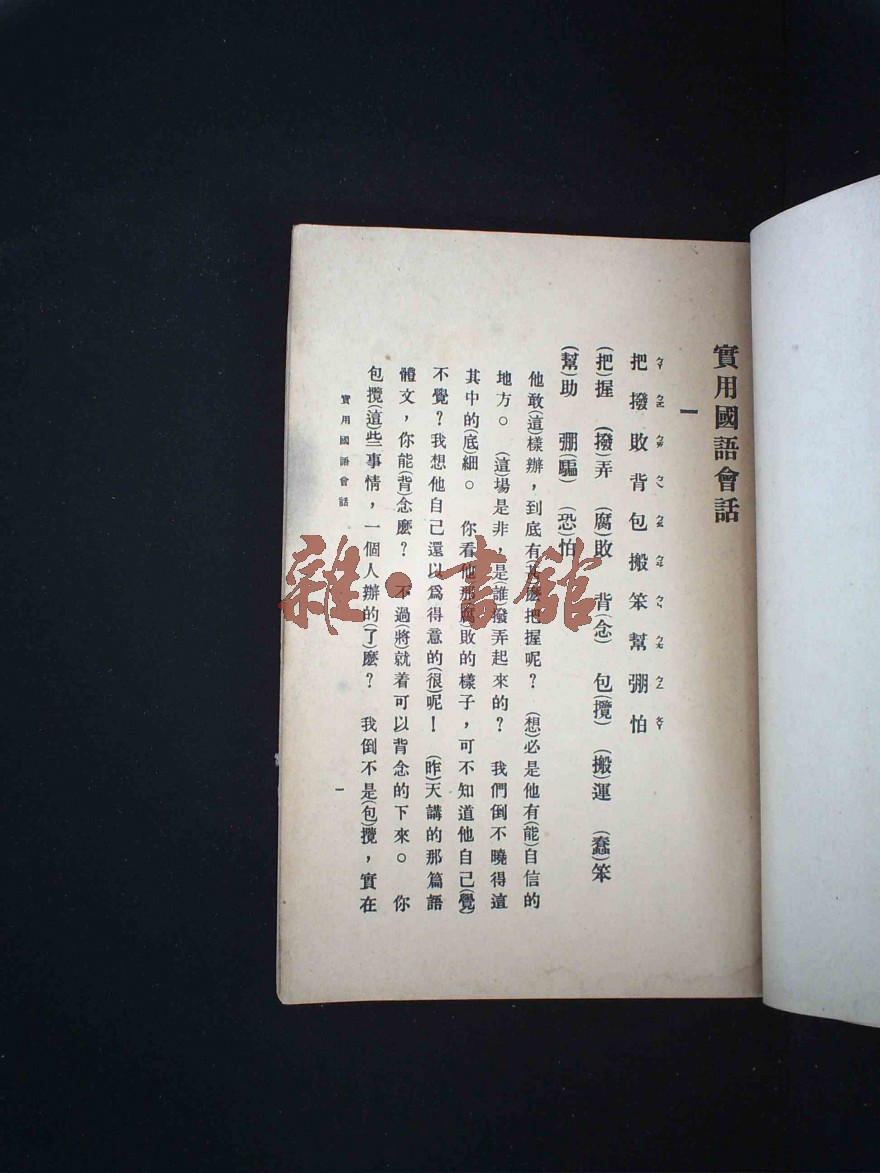 實用國語會話
一
把撥敗背包搬笨幫弸怕
ㄅㄚ ㄅㄛ ㄅㄞ ㄅㄟ ㄅㄠ ㄅㄢ ㄅㄣ ㄅㄤ ㄅㄥ ㄆㄚ
(把)握 (撥)弄 (腐)敗 背(念) 包(攬) (搬)運 (蠢)笨
(幫)助 弸(騙) (恐)怕
他敢(這)樣辦，到底有(甚)麽把握呢？ (想)必是他有(能)自信的
地方。 (這)場是非，是(誰)撥弄起來的？ 我們倒不曉得這
其中的(底)細。 你看他那(腐)敗的樣子，可不知道他自己(覺)
不覺？我想他自己還以爲得意的(很)呢！ (昨)天講的那篇語
體文，你能(背)念麽？ 不過(將)就着可以背念的下來。 你
包攬(這)些事情，一個人辦的(了)麽？ 我倒不是(包)攬，實在
實用國語會話
一
雜·書館